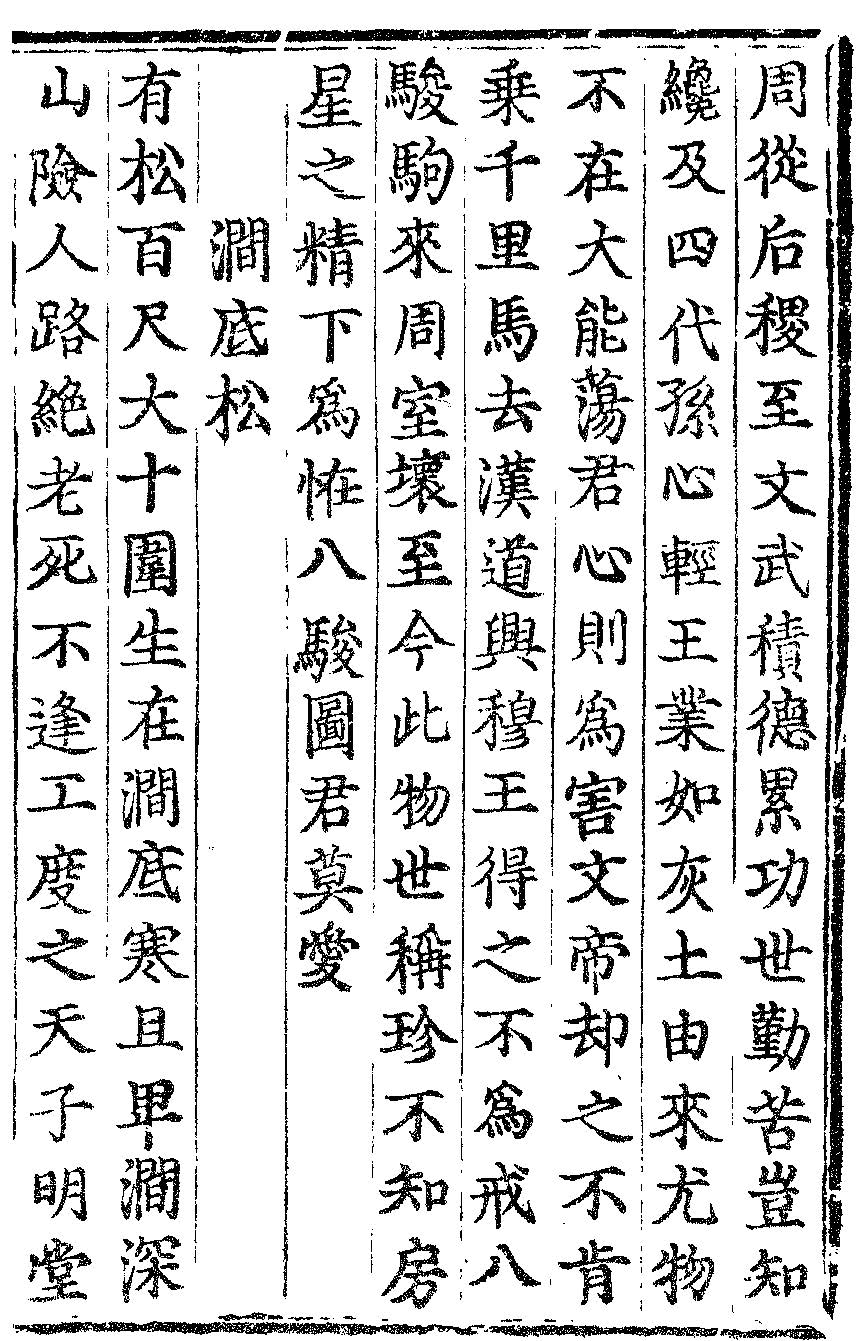 周從后稷至文武積德累功世勤苦豈知
纔及四代孫心輕王業如灰土由來尤物
不在大能蕩君心則為害文帝却之不肯
乗千里馬去漢道興穆王得之不為戒八
駿駒來周室壞至今此物世稱珍不知房
星之精下為恠八駿圖君莫愛
澗底松
有松百尺大十圍生在澗底寒且卑澗深
山險人路絶老死不逢工度之天子明堂